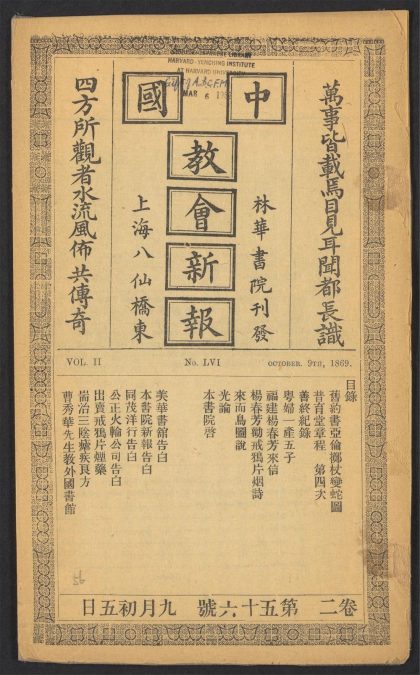 HARVARD-YENCHING INSTITUTE
AT HARVARD UNIVERSITY
MAR 6
萬事皆載焉目見耳聞都長識
中國
教會新報
林華書院刊發
上海八仙橋東
四方所觀者水流風佈共傳奇
VOL. II
No. LVI
OCTOBER. 9TH, 1869.
目錄
舊約書亞倫擲杖變蛇圖
昔育堂章程 第四次
善終紀錄
粵婦一產五子
福建楊春芳來信
楊春芳勸戒鴉片烟詩
來而鳥圖說
光論
本書院啓
美華書館告白
本書院新報告白
同茂洋行告白
公正火輪公司告白
出賣戒鴉片煙藥
崙治三陰瘧疾良方
曹秀華先生教外國書館
56
卷二 第五十六號 九月初五日